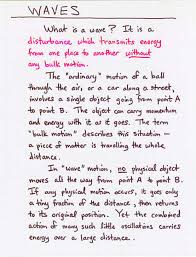 WAVES
What is a wave? It is a
disturbance which transmits energy
from one place to another without
any bulk motion.
The "ordinary" motion of a ball
through the air, or a car along a street,
involves a single object going from point A
to point B. The object can carry momentum
and energy with it as it goes. The term
"bulk motion" describes this situation —
a piece of matter is travelling the whole
distance.
In "wave" motion, no physical object
moves all the way from point A to point B. If
any physical motion occurs, it goes only
a tiny fraction of the distance, then returns
to its original position. Yet the combined
action of many such little oscillations carries
energy over a large distance.